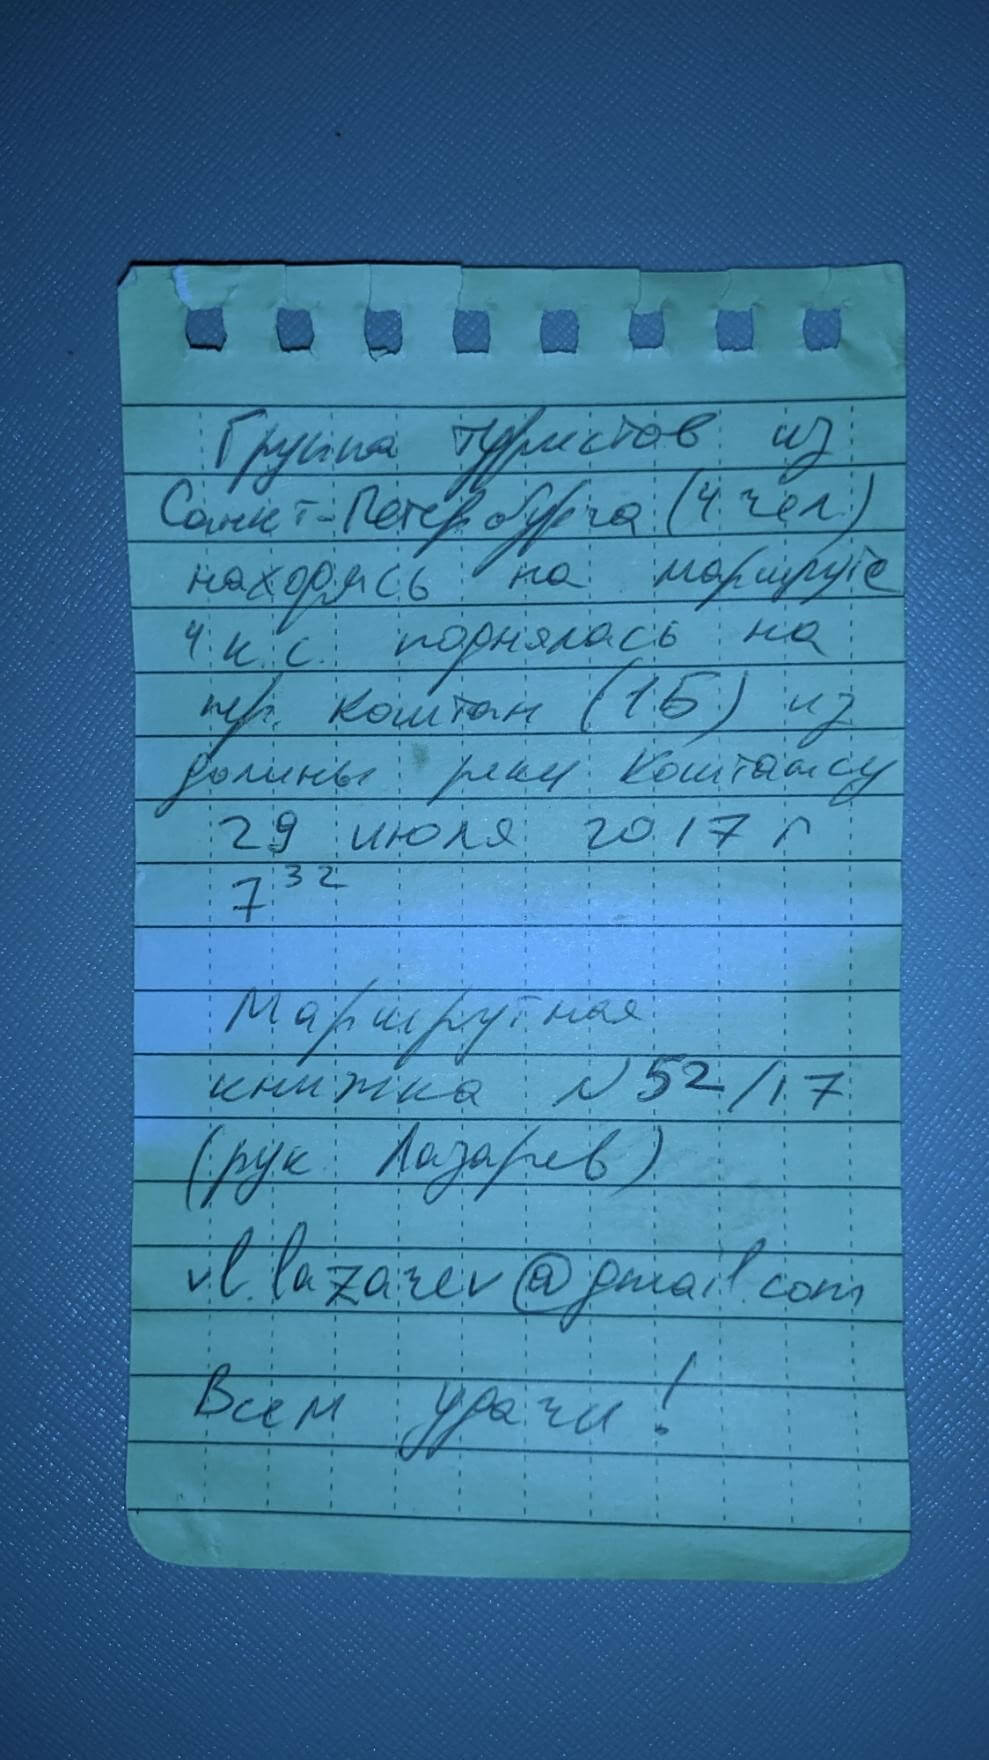 Группа туристов из
Санкт-Петербурга (4 чел)
находясь на маршруте
4 к.с. поднялась на
пер. Коштан (1Б) из
долины реки Коштансу
29 июля 2017 г
7³²
Маршрутная
книжка N 52/17
(рук Лазарев)
vl.lazarev@gmail.com
Всем удачи!